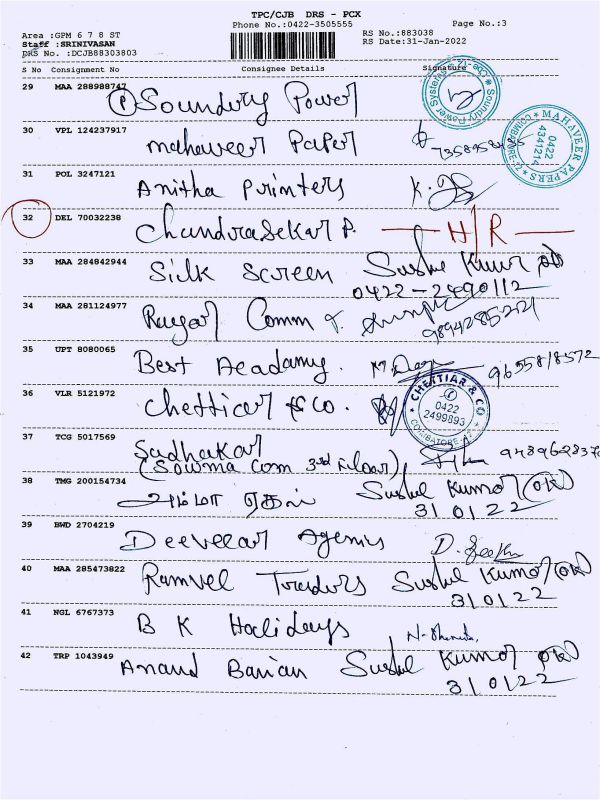 TPC/CJB DRS - PCX
Phone No.:0422-3505555
Page No.:3
Area :GPM 6 7 8 ST
RS No.:883038
Staff :SRINIVASAN
RS Date:31-Jan-2022
DRS No. :DCJB88303803
S No Consignment No Consignee Details Signature
29 MAA 288988747 Soundry Power
Soundry Power Systems
30 VPL 124237917 mahaveer Paper
MAHAVEER PAPERS
0422
4341214
COIMBATORE-2
31 POL 3247121 Anitha Printers
32 DEL 70032238 Chandrasekar P. H/R
33 MAA 284842944 Silk Screen Sushil Kumar
0422-2490112
34 MAA 281124977 Comm
35 UPT 8080065 Best Acadamy. 9655818572
36 VLR 5121972 Chettiar & Co.
CHETTIAR & CO
0422
2499893
COIMBATORE
37 TCG 5017569 Sudhakar
(Sowma Com 3rd floor)
38 TMG 200154734 அம்மா Sushil Kumar
310122
39 BWD 2704219 Deeveear Agenies
40 MAA 285473822 Ramvel Traders Sushil Kumar
310122
41 NGL 6767373 B K Halidays
42 TRP 1043949 Anand Banian Sushil Kumar
310122